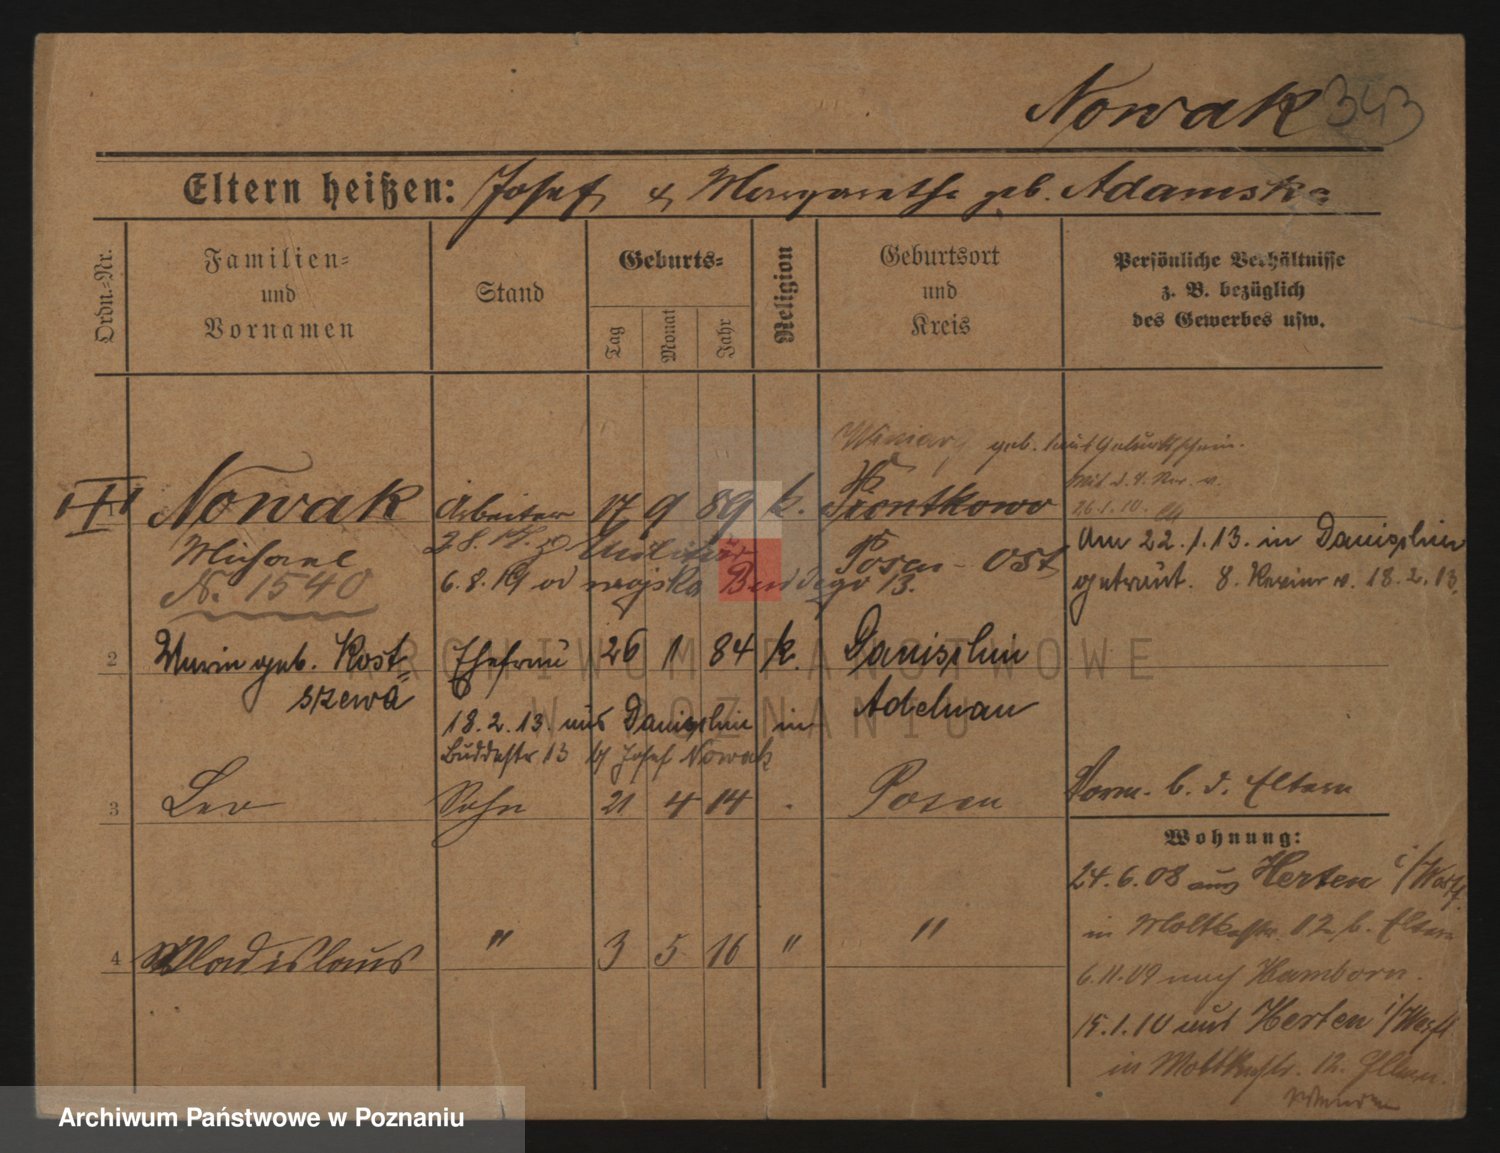 Nowak 343
Eltern heißen: Josef & Margarethe geb. Adamska
Ordn.-Nr.
Familien-
und
Vornamen
Stand
Geburts-
Tag
Monat
Jahr
Religion
Geburtsort
und
Kreis
Persönliche Verhältnisse
z. B. bezüglich
des Gewerbes usw.
Winiary geb. laut Geburtsschein.
Nowak Arbeiter 17 9 89 k. Piontkowo
26.1.10.
Michael Militär Posen - Ost
N. 1540
6.8.19 od wojska 13.
Am 22.1.13. in Danischin
getraut. 8. Revier v. 18.2.13.
2 Maria geb. Kost- Ehefrau 26 1 84 k. Danischin
szewa Adelnau
18.2.13. aus Danischin in
Buddestr 13 b/ Josef Nowak
3 Leo Sohn 21 4 14 . Posen
Vorm. b. d. Eltern
Wohnung:
24.6.08 aus Herten i/Westf.
in Moltkestr. 12 b. Eltern
4 Wladislaus " 3 5 16 " "
6.11.09 nach Hamborn.
15.1.10 aus Herten i/Westf
in Moltkestr. 12. Eltern.
ARCHIWUM PAŃSTWOWE
W POZNANIU
Archiwum Państwowe w Poznaniu